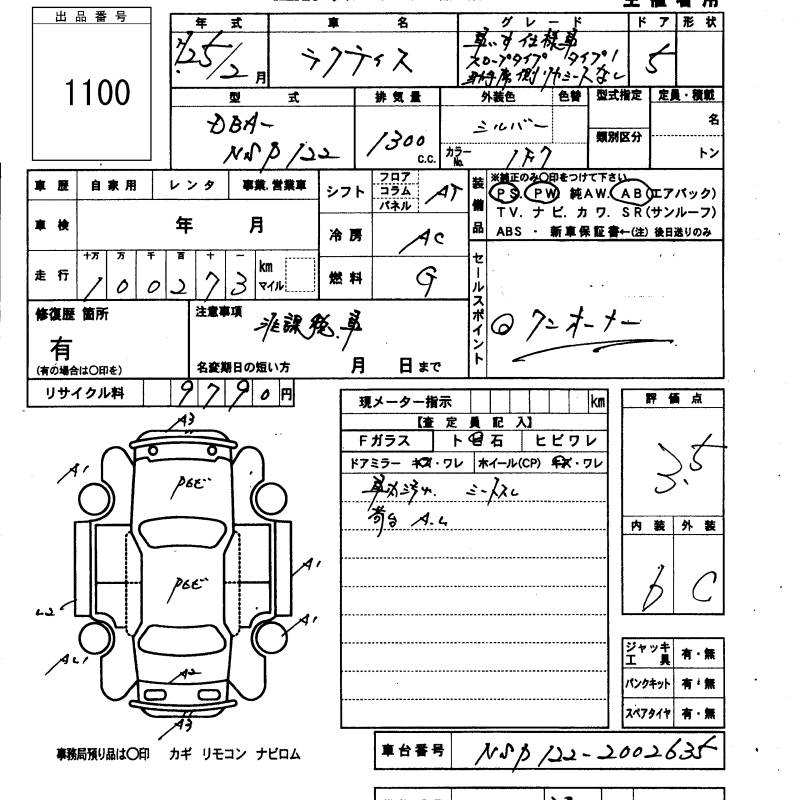 出品番号
1100
年式 車名 グレード ドア 形状
25/2月 ラクティス 車いす仕様車 5
スロープタイプ タイプ1
助手席側リヤシートなし
型式 排気量 外装色 色替 型式指定 定員・積載
DBA- シルバー 名
NSP122 1300 c.c. カラーNo. 1F7 類別区分 トン
車歴 自家用 レンタ 事業.営業車
シフト フロア コラム パネル AT
装備品 ※純正のみ〇印をつけて下さい
PS. PW. 純AW. AB(エアバック)
TV. ナビ. カワ. SR(サンルーフ)
ABS ・ 新車保証書←(注) 後日送りのみ
車検 年 月
冷房 AC
走行 十万 万 千 百 十 一 km マイル
100273
燃料 G
セールスポイント ◎ワンオーナー
修復歴 箇所
有
(有の場合は〇印を)
注意事項 非課税車
名変期日の短い方 月 日まで
リサイクル料 9790円
現メーター指示 km
【査定員記入】
Fガラス ト日石 ヒビワレ
ドアミラー キズ・ワレ ホイール(CP) キズ・ワレ
車内汚れ シートスレ
荷台 A.L
評価点
3.5
内装 外装
b C
A3
A1
PBE
PBE
A1
L2
A1
AL1
A2
A3
ジャッキ工具 有・無
パンクキット 有・無
スペアタイヤ 有・無
事務局預り品は〇印 カギ リモコン ナビロム
車台番号 NSP122-2002635